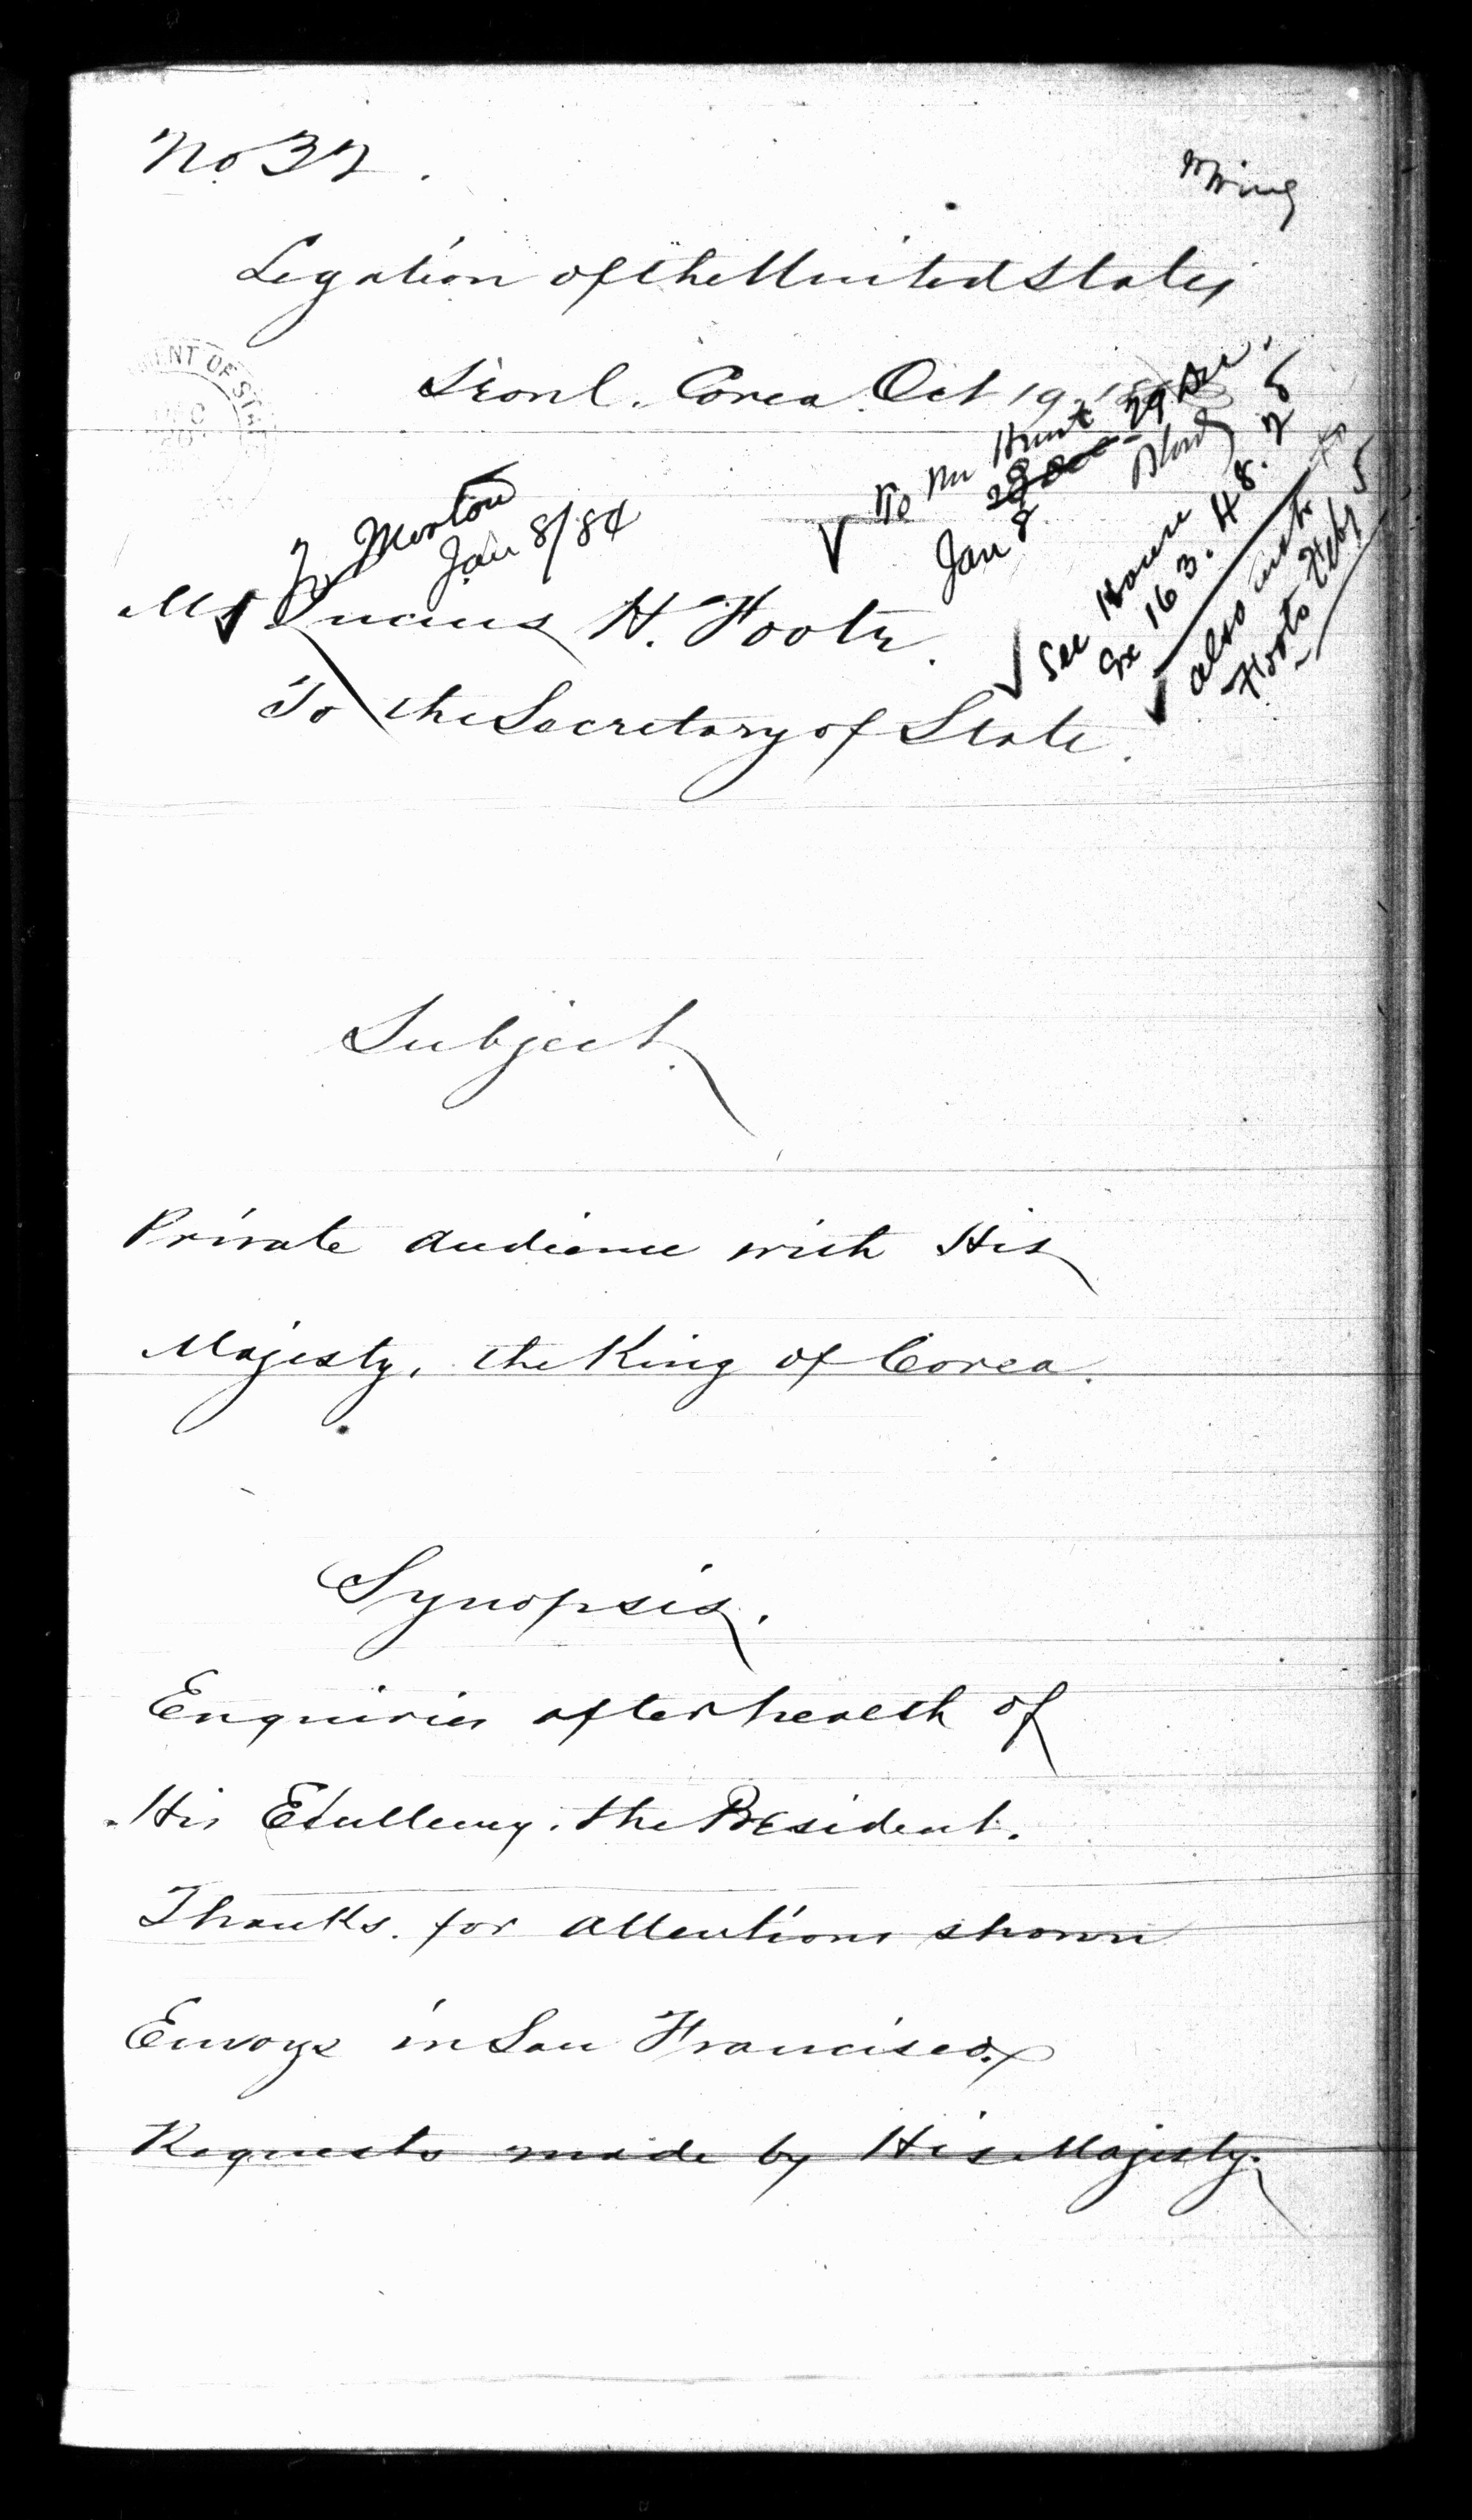 No 37.
Legation of the United States
Seoul. Corea. Oct 19.
MENT OF STATE
Morton
Jan 8/84
To Mr Hunt 29 Dec.
Jan 8
See House
Ex 163. 48. 2
also instr to
Foote Feby 5
Mr Lucius H. Foote.
To the Secretary of State.
Subject.
Private audience with His
Majesty, the King of Corea.
Synopsis.
Enquiries after health of
His Excellency, the President.
Thanks. for attentions shown
Envoys in San Francisco.
Requests made by His Majesty.